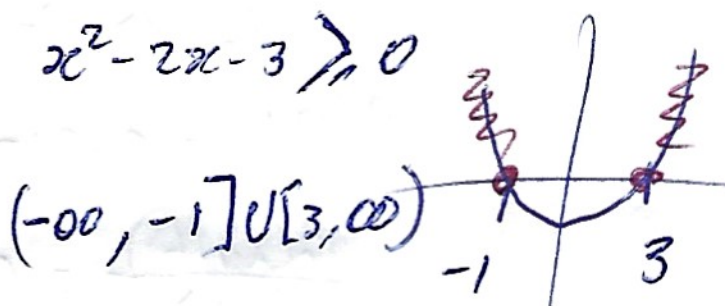 x² - 2x - 3 ⩾ 0
(-∞, -1] ∪ [3, ∞)
-1 3